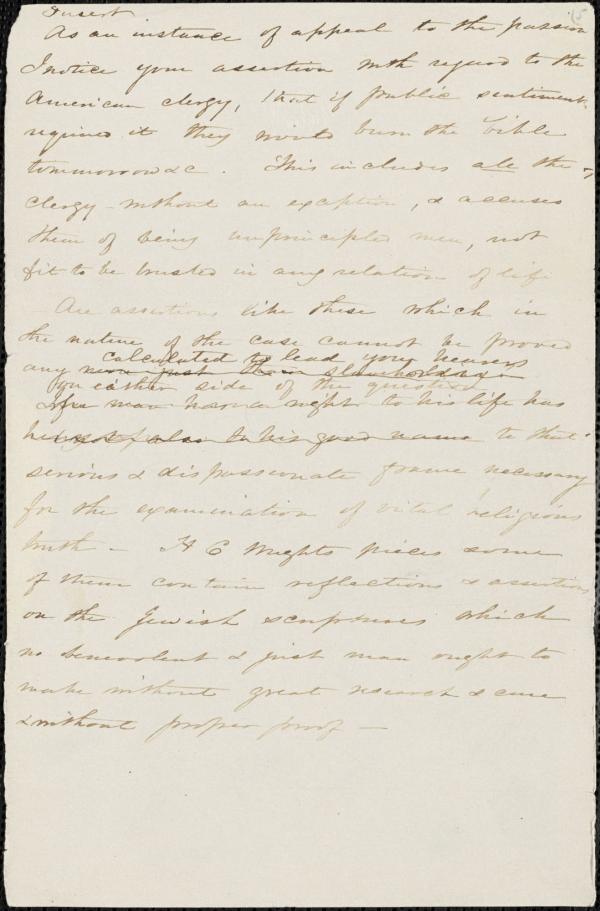 Insert
As an instance of appeal to the passion
I notice your assertion with regard to the
American clergy, that if public sentiment
required it they would burn the bible
tommorrow &c. This includes all the
clergy without an exception, & accuses
them of being unprincipled men, not
fit to be trusted in any relation of life
Are assertions like these which in
the nature of the case cannot be proved
calculated to lead your hearers
any more just than slaveholding
on either side of the question
If a man has a right to his life has
he not also to his good name to that
serious & dispassionate frame necessary
for the examination of vital religious
truth - H C Wrights pieces some
of them contain reflections & assertions
on the Jewish scriptures which
no benevolent & just man ought to
make without great research & care
& without proper proof -